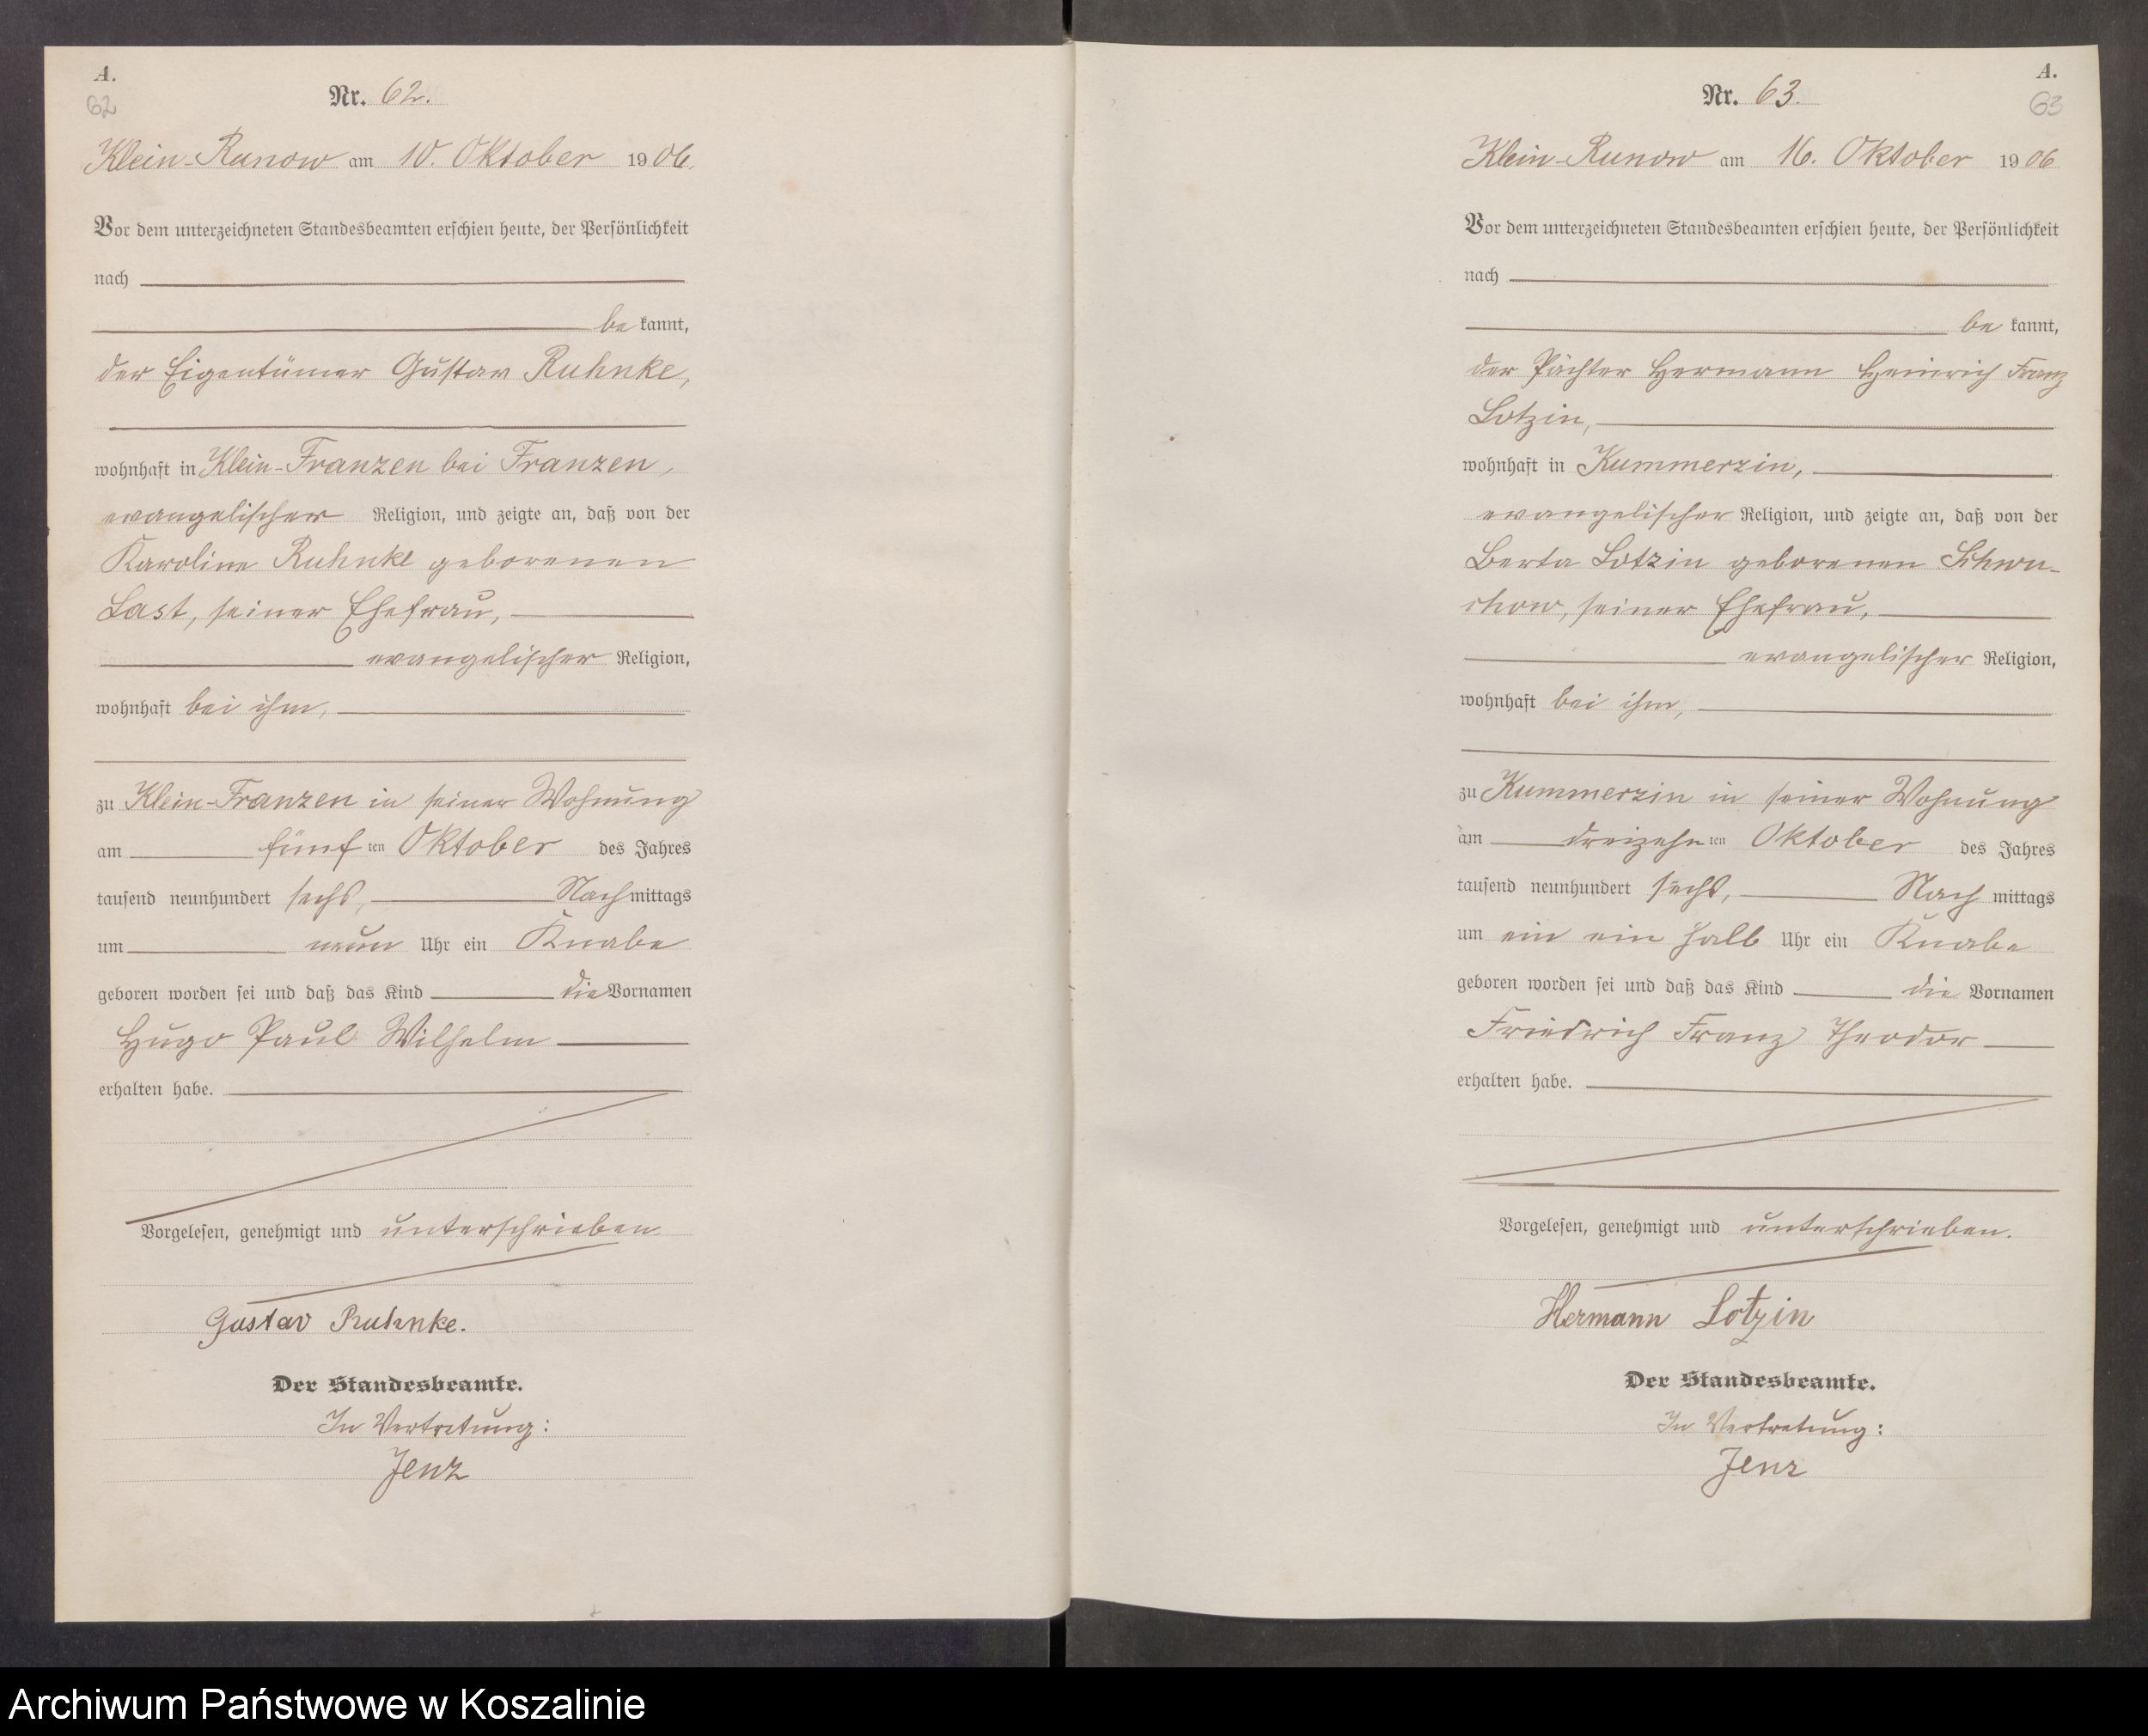 A.
62
Nr. 62.
Klein-Runow am 10. Oktober 1906.
Vor dem unterzeichneten Standesbeamten erschien heute, der Persönlichkeit
nach
be kannt,
der Eigentümer Gustav Ruhnke,
wohnhaft in Klein-Franzen bei Franzen,
evangelischer Religion, und zeigte an, daß von der
Karoline Ruhnke geborenen
Last, seiner Ehefrau,
evangelischer Religion,
wohnhaft bei ihm,
zu Klein-Franzen in seiner Wohnung
am fünf ten Oktober des Jahres
tausend neunhundert sechs, Nachmittags
um neun Uhr ein Knabe
geboren worden sei und daß das Kind die Vornamen
Hugo Paul Wilhelm
erhalten habe.
Vorgelesen, genehmigt und unterschrieben.
Gustav Ruhnke.
Der Standesbeamte.
In Vertretung:
Jenz
A.
63
Nr. 63.
Klein-Runow am 16. Oktober 1906
Vor dem unterzeichneten Standesbeamten erschien heute, der Persönlichkeit
nach
be kannt,
der Pächter Hermann Heinrich Franz
Lotzin,
wohnhaft in Kummerzin,
evangelischer Religion, und zeigte an, daß von der
Berta Lotzin geborenen
seiner Ehefrau,
evangelischer Religion,
wohnhaft bei ihm,
zu Kummerzin in seiner Wohnung
am dreizehn ten Oktober des Jahres
tausend neunhundert sechs, Nach mittags
um ein ein halb Uhr ein Knabe
geboren worden sei und daß das Kind die Vornamen
Friedrich Franz Theodor
erhalten habe.
Vorgelesen, genehmigt und unterschrieben.
Hermann Lotzin
Der Standesbeamte.
In Vertretung:
Jenz
Archiwum Państwowe w Koszalinie